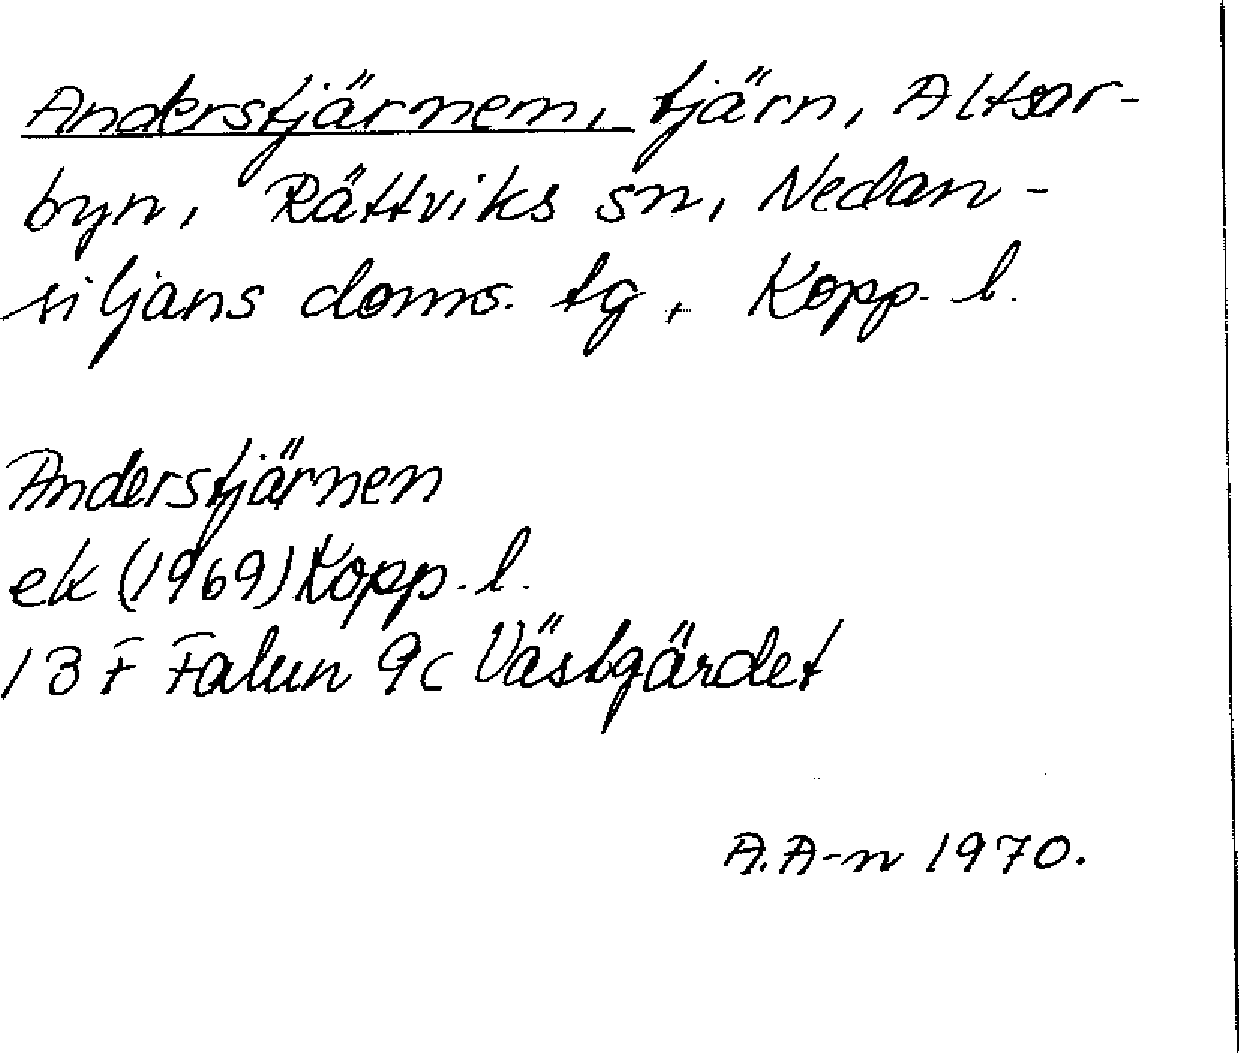 Anderstjärnen, tjärn, Altsar-
byn, Rättviks sn, Nedan-
siljans doms. tg, Kopp. l.
Anderstjärnen
ek (1969) Kopp. l.
13 F Falun 9c Västgärdet
A. A-n 1970.